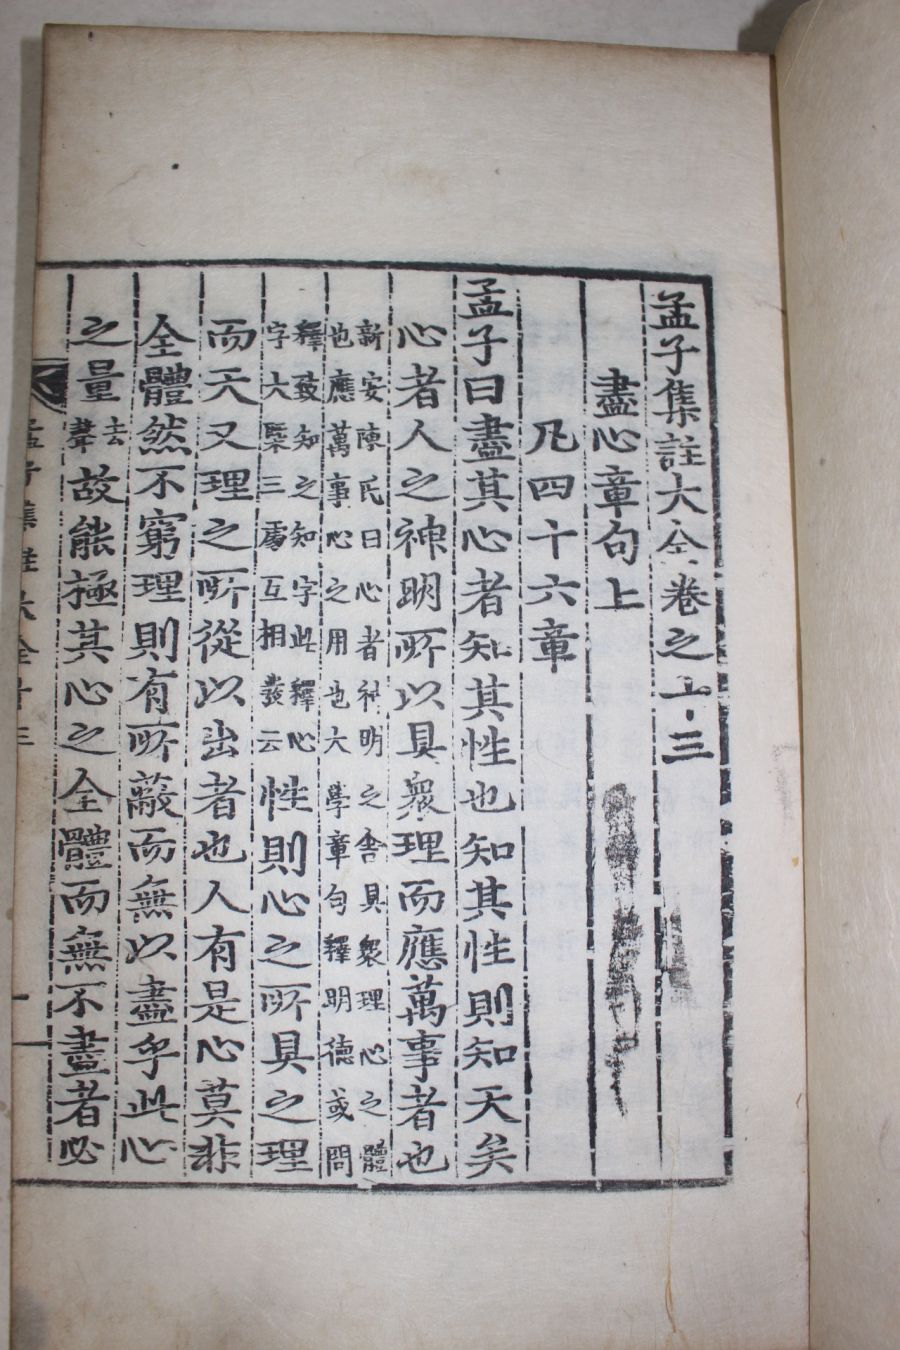 孟子集註大全卷之十三
盡心章句上
凡四十六章
孟子曰盡其心者知其性也知其性則知天矣
心者人之神明所以具衆理而應萬事者也
新安陳氏曰心者神明之舍具衆理心之體
也應萬事心之用也大學章句釋明德或問
釋致知之知字此釋心
字大槩三處互相發云
性則心之所具之理
而天又理之所從以出者也人有是心莫非
全體然不窮理則有所蔽而無以盡乎此心
之量去聲故能極其心之全體而無不盡者必
孟子集註大全卷十三
一